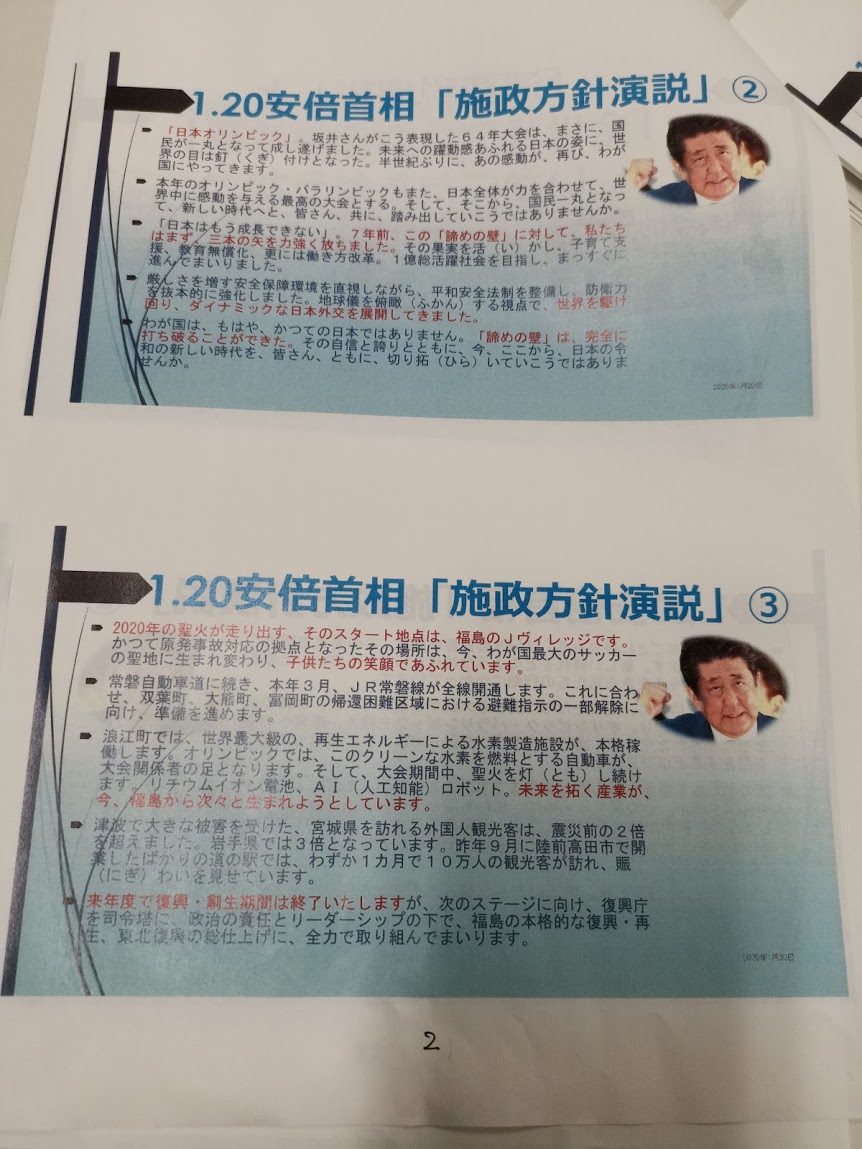 1.20安倍首相「施政方針演説」②
「日本オリンピック」。坂井さんがこう表現した６４年大会は、まさに、国
民が一丸となって成し遂げました。未来への躍動感あふれる日本の姿に、世
界の目は釘（くぎ）付けとなった。半世紀ぶりに、あの感動が、再び、わが
国にやってきます。
本年のオリンピック・パラリンピックもまた、日本全体が力を合わせて、世
界中に感動を与える最高の大会とする。そして、そこから、国民一丸となっ
て、新しい時代へと、皆さん、共に、踏み出していこうではありませんか。
「日本はもう成長できない」。７年前、この「諦めの壁」に対して、私たち
はまず、三本の矢を力強く放ちました。その果実を活（い）かし、子育て支
援、教育無償化、更には働き方改革。１億総活躍社会を目指し、まっすぐに
進んでまいりました。
厳しさを増す安全保障環境を直視しながら、平和安全法制を整備し、防衛力
を抜本的に強化しました。地球儀を俯瞰（ふかん）する視点で、世界を駆け
回り、ダイナミックな日本外交を展開してきました。
わが国は、もはや、かつての日本ではありません。「諦めの壁」は、完全に
打ち破ることができた。その自信と誇りとともに、今、ここから、日本の令
和の新しい時代を、皆さん、ともに、切り拓（ひら）いていこうではありま
せんか。
2020年1月30日
1.20安倍首相「施政方針演説」③
2020年の聖火が走り出す、そのスタート地点は、福島のＪヴィレッジです。
かつて原発事故対応の拠点となったその場所は、今、わが国最大のサッカー
の聖地に生まれ変わり、子供たちの笑顔であふれています。
常磐自動車道に続き、本年３月、ＪＲ常磐線が全線開通します。これに合わ
せ、双葉町、大熊町、富岡町の帰還困難区域における避難指示の一部解除に
向け、準備を進めます。
浪江町では、世界最大級の、再生エネルギーによる水素製造施設が、本格稼
働します。オリンピックでは、このクリーンな水素を燃料とする自動車が、
大会関係者の足となります。そして、大会期間中、聖火を灯（とも）し続け
ます。リチウムイオン電池、ＡＩ（人工知能）ロボット。未来を拓く産業が、
今、福島から次々と生まれようとしています。
津波で大きな被害を受けた、宮城県を訪れる外国人観光客は、震災前の２倍
を超えました。岩手県では３倍となっています。昨年９月に陸前高田市で開
業したばかりの道の駅では、わずか１カ月で１０万人の観光客が訪れ、賑
（にぎ）わいを見せています。
来年度で復興・創生期間は終了いたしますが、次のステージに向け、復興庁
を司令塔に、政治の責任とリーダーシップの下で、福島の本格的な復興・再
生、東北復興の総仕上げに、全力で取り組んでまいります。
2020年1月30日
2